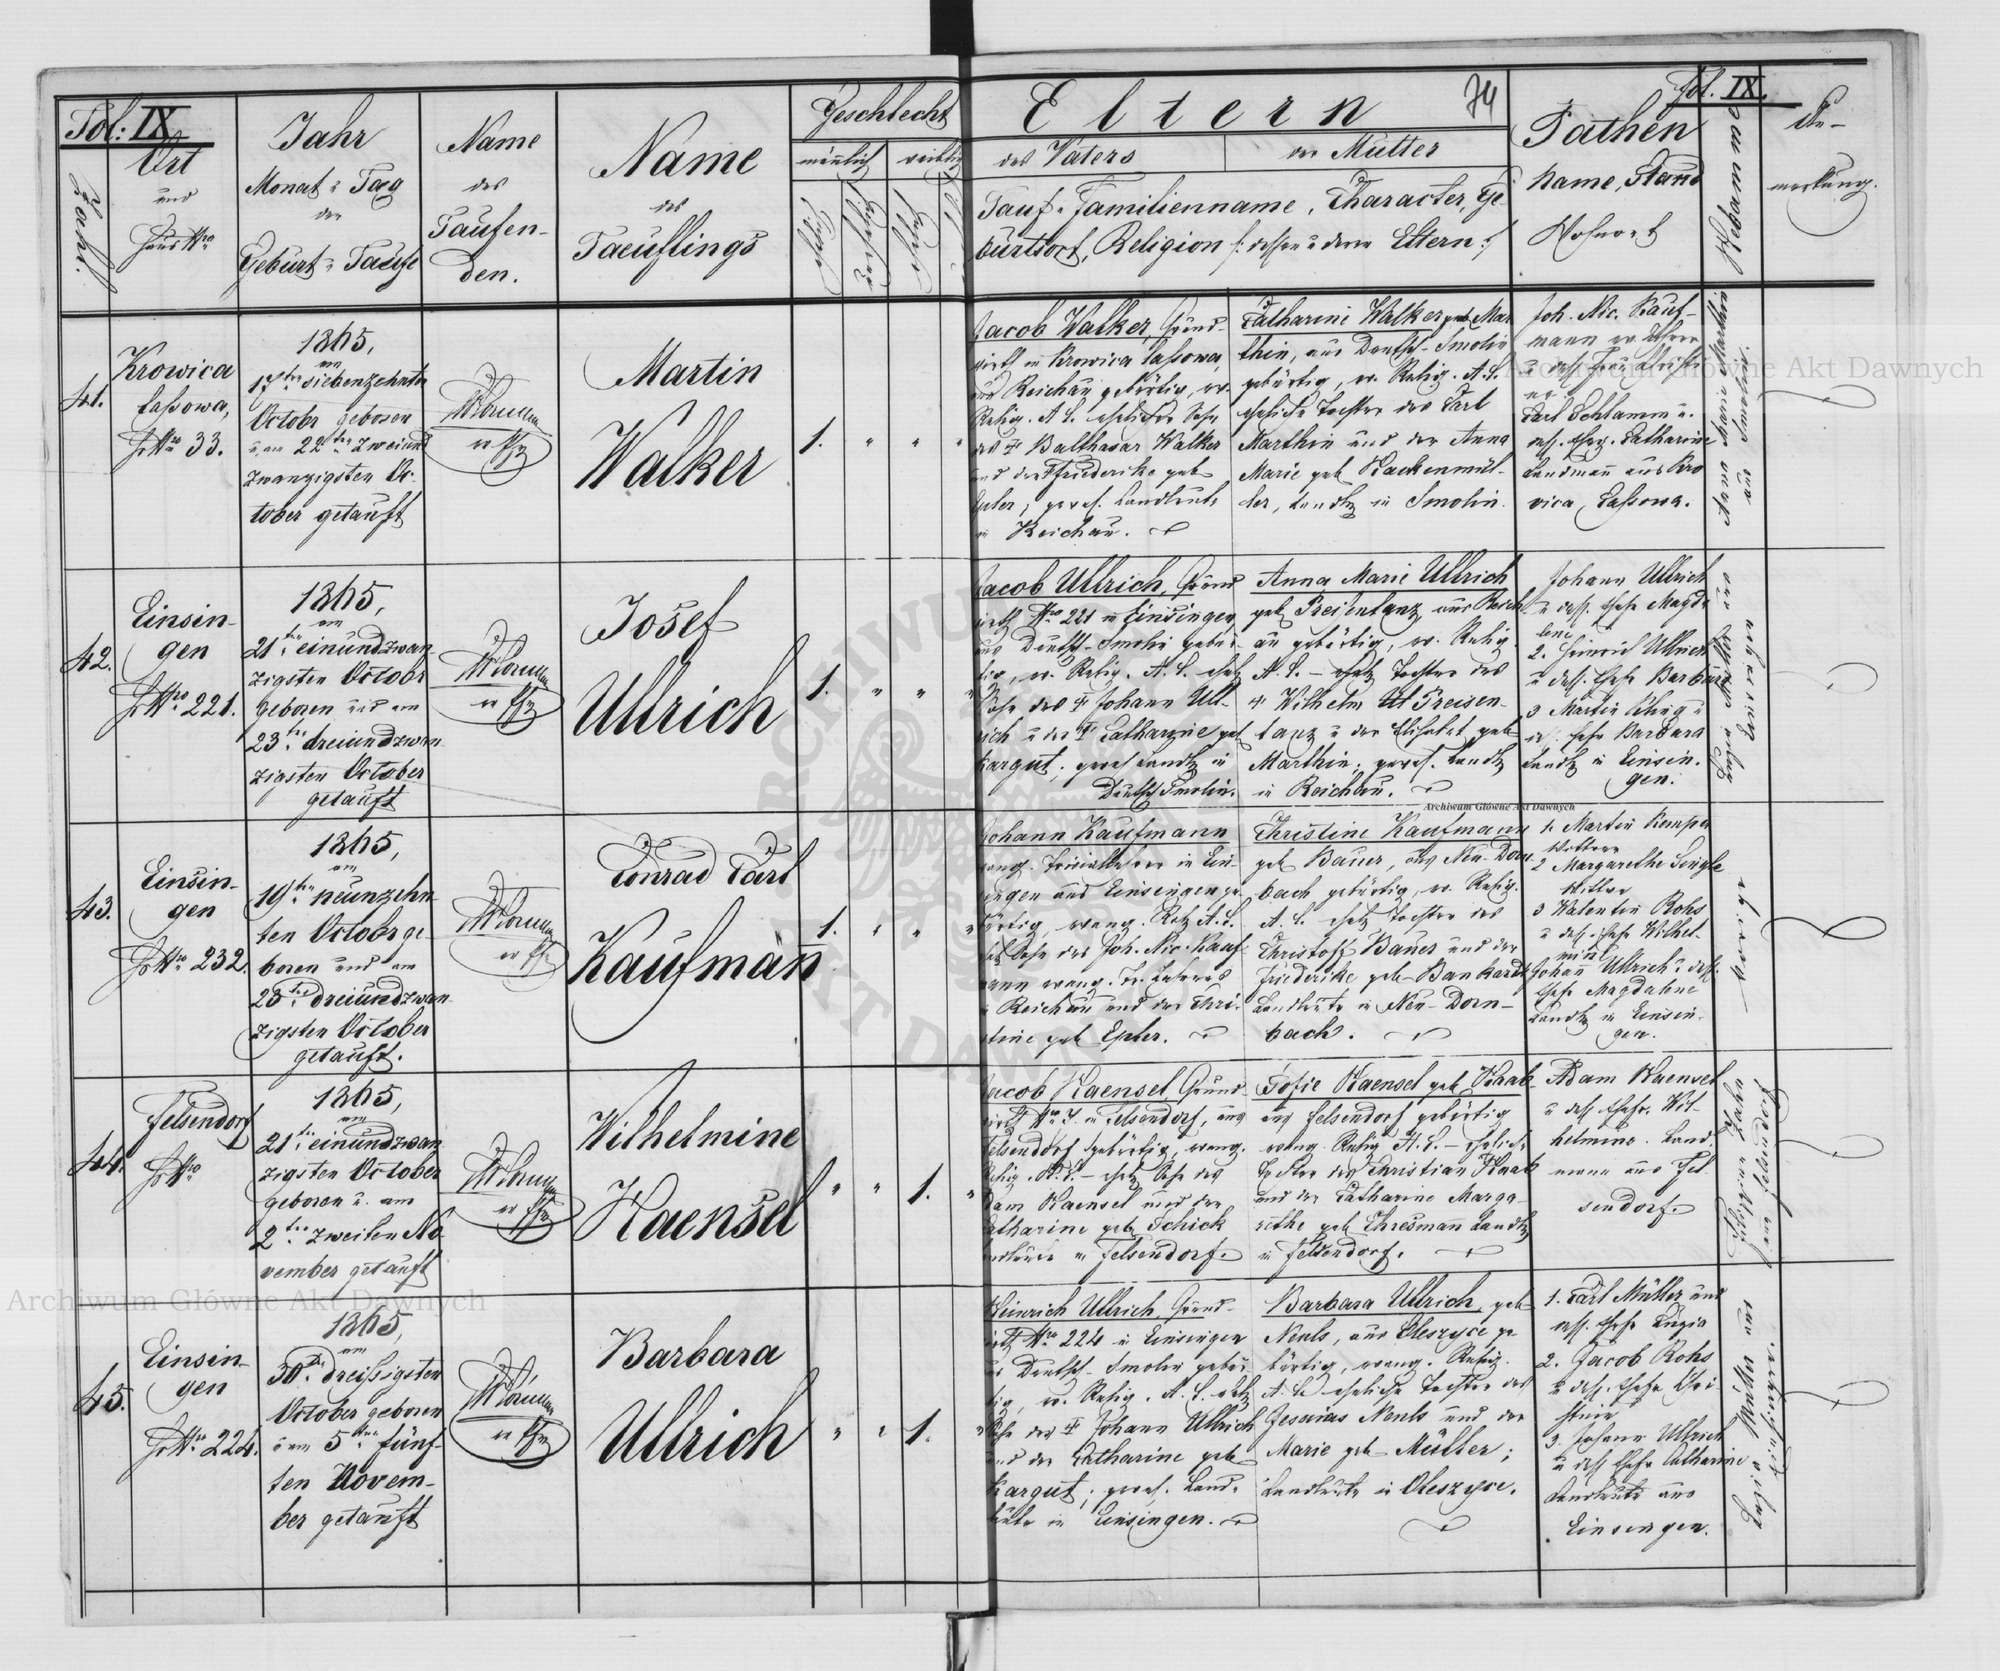 Fol: IX
Zahl.
Ort
und
Haus Nro
Jahr
Monat u Tag
der
Geburt u Taufe
Name
des
Taufen-
den.
Name
des
Taeuflings
Geschlecht
männlich
weiblich
Eltern
74
des Vaters
der Mutter
Tauf- Familienname, Character, Ge-
burtsort, Religion /: dessen u deren Eltern :/
Fol. IX.
Pathen
Name, Stand
Wohnort
Hebamme
An-
merkung.
41.
Krowica
Lassowa,
H Nro 33.
1865,
am
17ten siebenzehnten
Octobr geboren
u am 22ten zweiund
zwanzigsten Oc-
tober getauft
Martin
Walker
1. " " "
Jacob Walker, Grund-
wirth in Krowica Lassowa,
aus Reichau gebürtig, ev.
Relig. A. C. ehelicher Sohn
des † Balthasar Walker
und der † Friederike geb
Epler, gewes. Landleute
in Reichau.
Catharine Walker geb Mar
thin, aus Deutsch-Smolin
gebürtig, ev. Relig. A. C.
eheliche Tochter des Carl
Marthin und der Anna
Marie geb Hackenmül-
ler, Landltz in Smolin.
Joh. Nic. Kauf-
mann ev. Lehrer
u dess. Frau Christi
ne.
Carl Schlamm u.
dess. Eheg. Catharine
Landmann aus Kro
wica Lassowa.
42.
Einsin-
gen
H Nro 221.
1865,
am
21ten einundzwan
zigsten Octobr
geboren und am
23ten dreiundzwan
zigsten October
getauft
Josef
Ullrich
1. " " "
Jacob Ullrich, Grund
wirth Nro 221 in Einsingen
aus Deutsch-Smolin gebür-
tig, ev. Relig. A. C. ehel
Sohn des † Johann Ull-
rich u der † Catharine geb
Kargut, gewes Landltz in
Deutsch Smolin.
Anna Marie Ullrich
geb Preisentanz, aus Reich
au gebürtig, ev. Relig.
A. C. - ehel Tochter des
† Wilhelm Preisen-
tanz u der Elisabet geb
Marthin, gewes. Landltz
in Reichau.
Johann Ullrich
u dess. Ehefr Magda
lene
2. Heinrich Ullrich
u dess. Ehefr Barbara
3 Martin
Ehefr Barbara
Landltz in Einsin-
gen.
43.
Einsin-
gen
H Nro 232.
1865,
am
19ten neunzehn
ten Octobr ge-
boren und am
23ten dreiundzwan
zigsten October
getauft.
Conrad Carl
Kaufmann
1. " " "
Johann Kaufmann
evang. Trivialleherer in Ein-
singen aus Einsingen ge-
bürtig, evang. Relg A. C.
ehel Sohn des Joh. Nic. Kauf-
mann evang. Tr. Lehrers
in Reichau und der Chri-
stine geb Epler.
Christine Kaufmann
geb Bauer, aus Neu-Dorn-
bach gebürtig, ev. Relig.
A. C. ehel Tochter des
Christoff Bauer und der
Friederike geb Bankardt
Landleute in Neu-Dorn-
bach.
1. Martin Kemper
Wittwer
2 Margarethe
Wittwe
3 Valentin Rohs
u dess. Ehefr Wilhel-
mine
Johann Ullrich u dess.
Ehefr Magdalene
Landltz in Einsin-
gen.
44.
Felsendorf
H Nro
1865,
am
21ten einundzwan
zigsten October
geboren u. am
2ten zweiten No
vember getauft
Wilhelmine
Haensel
" " 1. "
Jacob Haensel, Grund-
wirth Nro 7. in Felsendorf, aus
Felsendorf gebürtig, evang.
Relig. A. C. - ehel Sohn des
Adam Haensel und der
Catharine geb Schick
Landleute in Felsendorf.
Sofie Haensel geb Knab
aus Felsendorf gebürtig
evang. Relig A. C. - eheliche
Tochter des Christian Knab
und der Catharine Marga-
rethe geb Ehresmann Landltz
in Felsendorf.
Adam Haensel
u dess Ehefr. Wil-
helmine. Land-
mann aus Fel
sendorf.
45.
Einsin-
gen
H Nro 224.
1865,
am
30ten dreissigsten
October geboren
u am 5ten fünf-
ten Novem-
ber getauft
Barbara
Ullrich
" " 1. "
Heinrich Ullrich, Grund-
wirth Nro 224 in Einsingen
aus Deutsch-Smolin gebür
tig, ev. Relig. A. C. ehel
Sohn des † Johann Ullrich
und der Catharine geb
Kargut; gewes. Land-
leute in Einsingen.
Barbara Ullrich, geb
Nenls, aus Oleszyce ge-
bürtig, evang. Relig.
A. C. eheliche Tochter des
Jesaias Nenls und der
Marie geb Müller;
Landleute in Oleszyce.
1. Carl Müller und
dess. Ehefr
2. Jacob Rohs
u dess. Ehefr Chri-
stine
3. Johann Ullrich
u dess Ehefr Catharine
Landleute aus
Einsingen.
Archiwum Główne Akt Dawnych
Archiwum Główne Akt Dawnych
Archiwum Główne Akt Dawnych